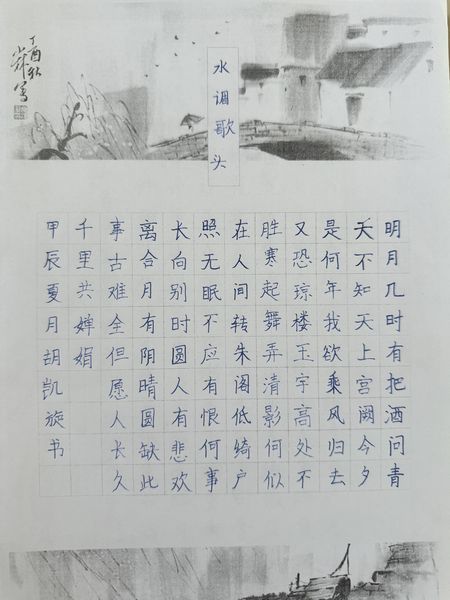 水调歌头
明月几时有把酒问青
天不知天上宫阙今夕
是何年我欲乘风归去
又恐琼楼玉宇高处不
胜寒起舞弄清影何似
在人间转朱阁低绮户
照无眠不应有恨何事
长向别时圆人有悲欢
离合月有阴晴圆缺此
事古难全但愿人长久
千里共婵娟
甲辰夏月胡凯旋书
丁酉秋